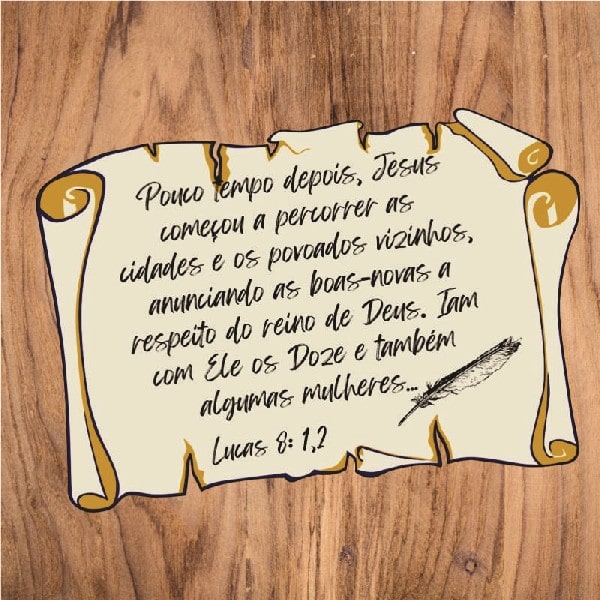 Pouco tempo depois, Jesus
começou a percorrer as
cidades e os povoados vizinhos,
anunciando as boas-novas a
respeito do reino de Deus. Iam
com Ele os Doze e também
algumas mulheres...
Lucas 8: 1,2